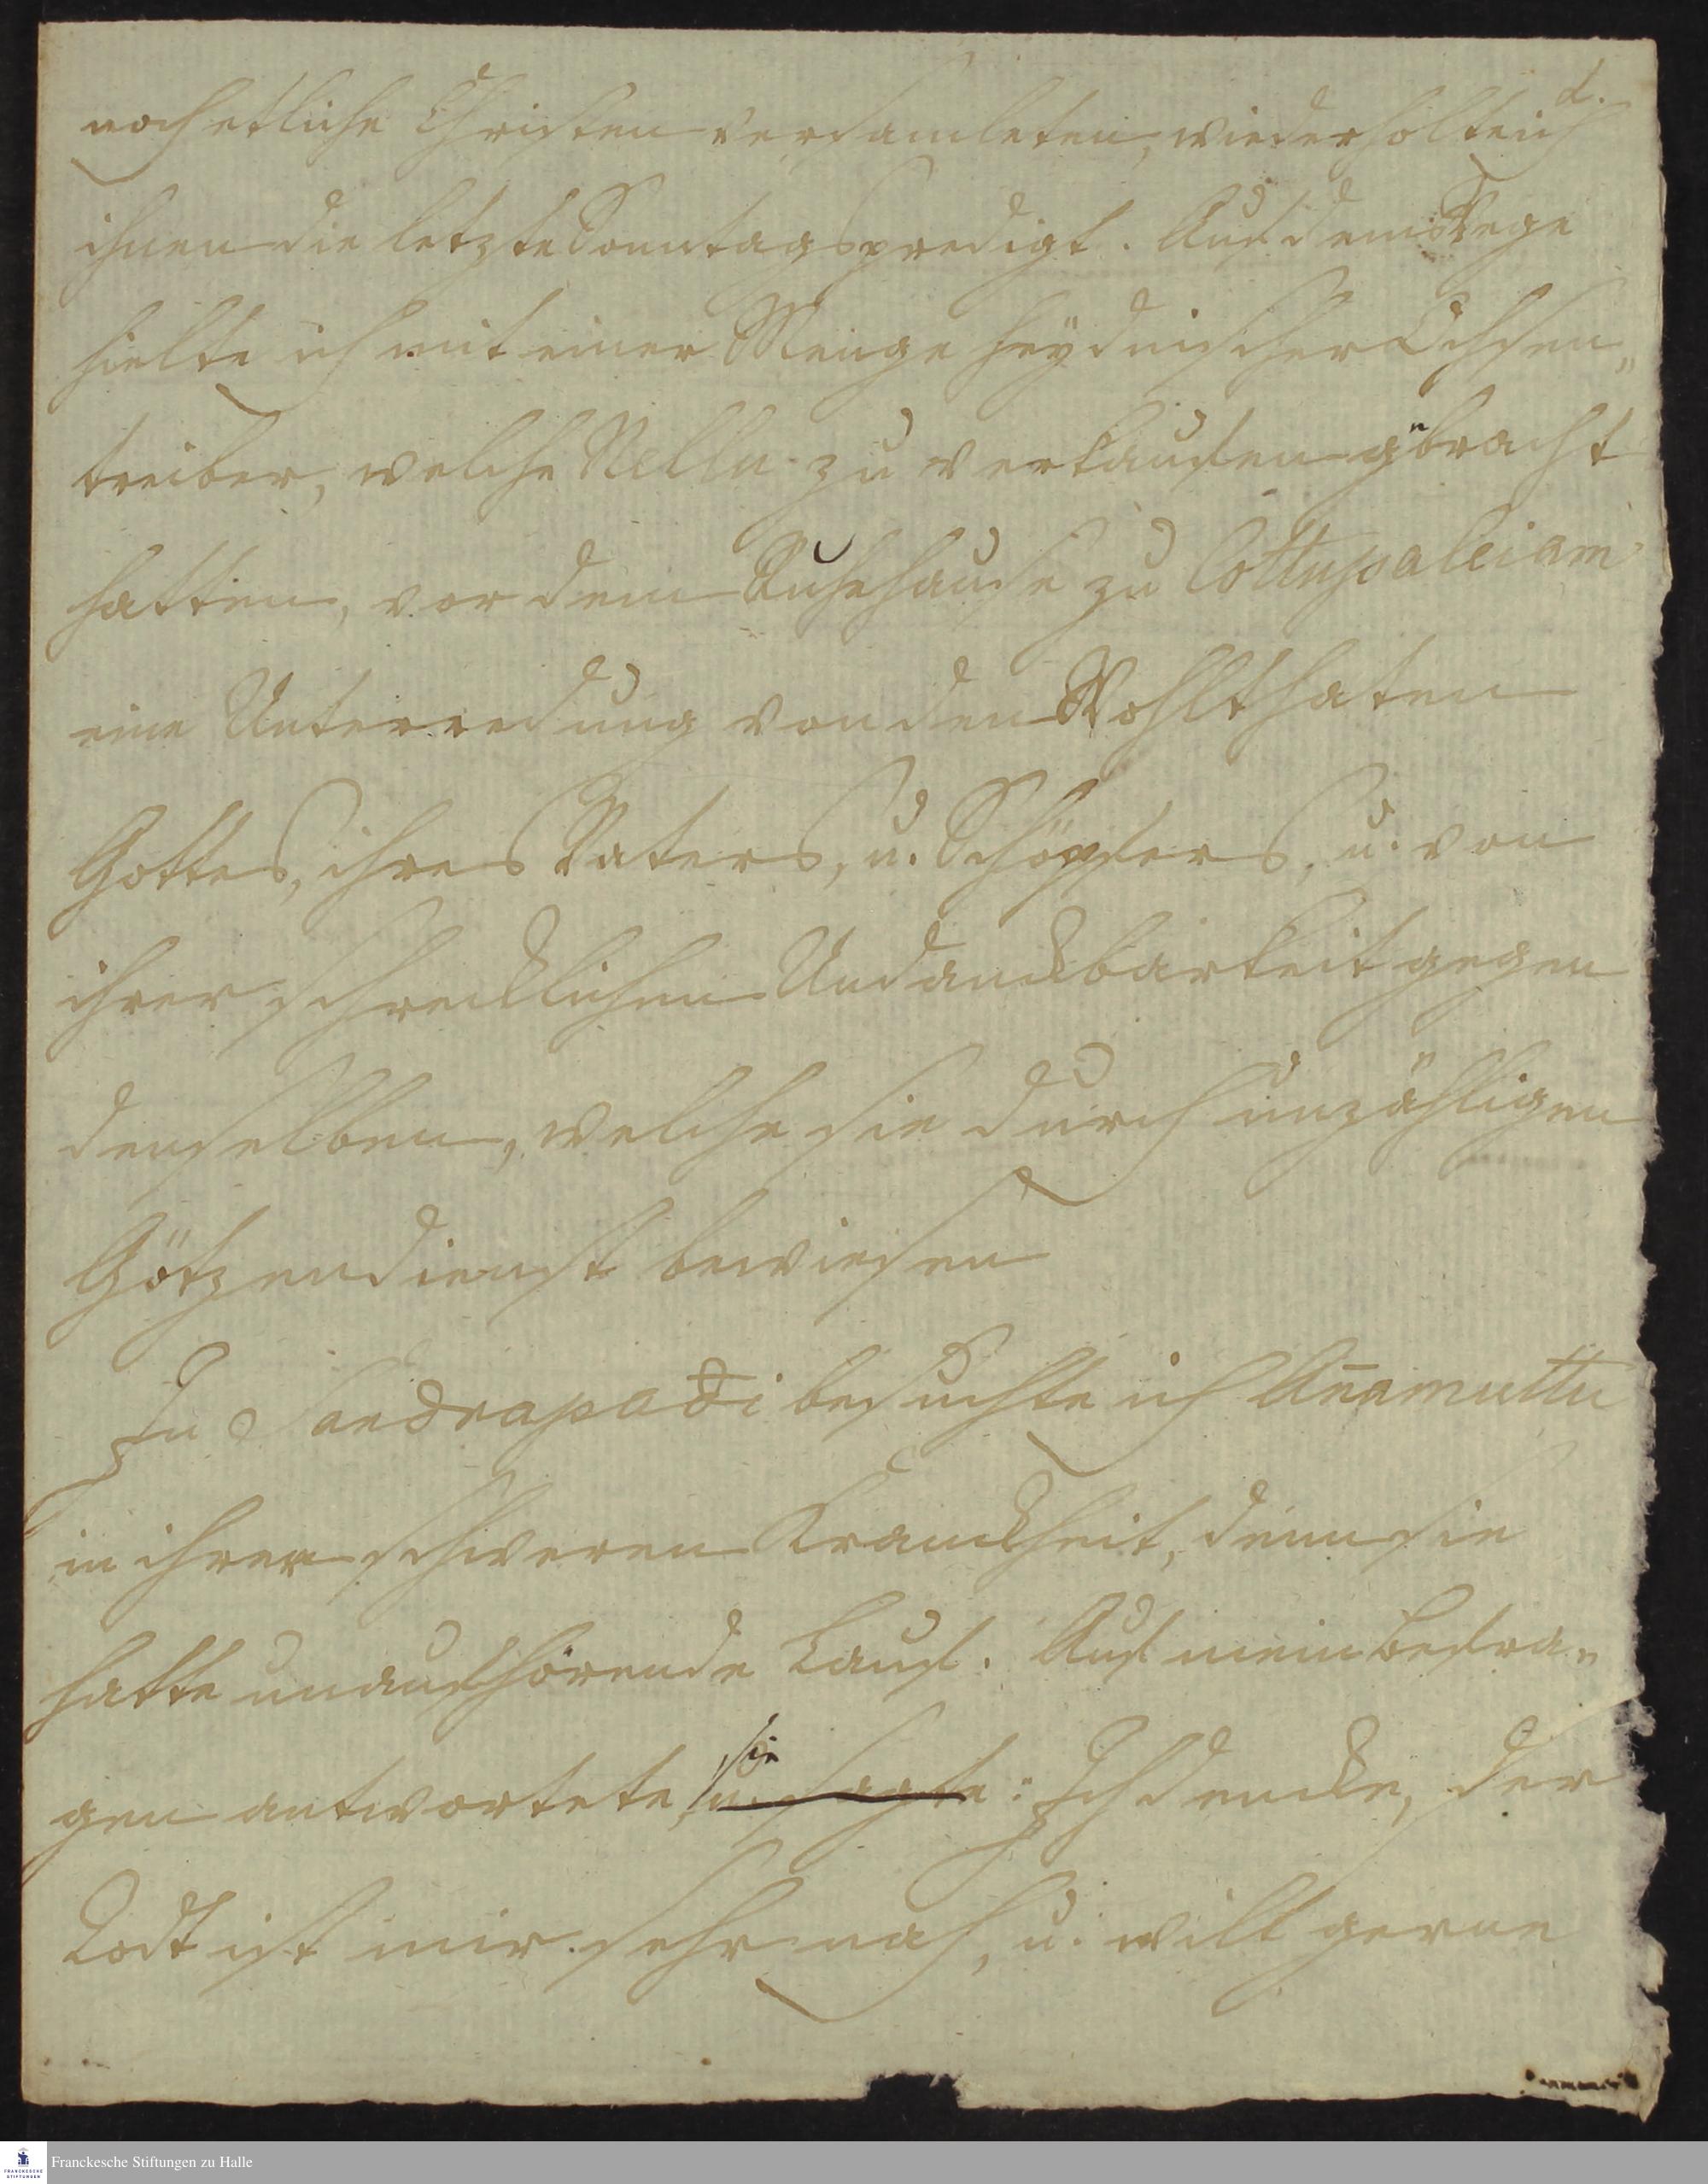 2.
noch etliche Christen versamleten, wiederholte ich
ihnen die letzte Sonntagspredigt. Auf dem Wege
hielte ich mit einer Menge heÿdnischer Ochsen„
treiber, welche Nellu zu verkaufen gebracht
hatten, vor dem Ruhehause zu Cottupaleiam
eine Unterredung von den Wohlthaten
Gottes, ihres Vaters, u. Schöpfers, u. von
ihrer schrecklichen Undanckbarkeit gegen
denselben, welche sie durch unzähligen
Götzendienst bewiesen
In Sandrapadi besuchte ich Añamuttu
in ihrer schweren Kranckheit, denn sie
hatte unaufhörende Lauf. Auf mein Befra„
gen antwortete, sie u. sagte: Ich dencke, der
Todt ist mir sehr nah, u. will gerne
Franckesche Stiftungen zu Halle